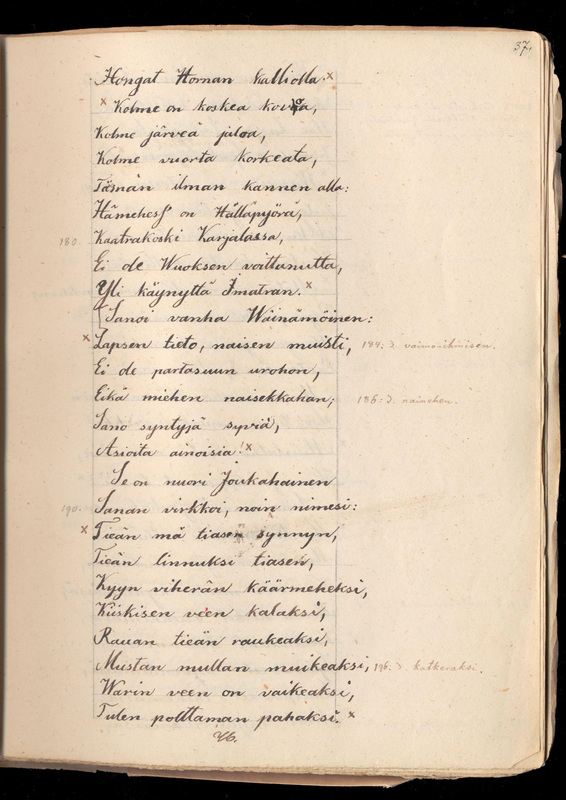 37.
Hongat Hornan kalliolla. x
x Kolme on koskea kovoa,
Kolme järveä jaloa,
Kolme vuorta korkeata,
Tämän ilman kannen alla:
Hämehess' on Hälläpyörä,
180. Kaatrakoski Karjalassa,
Ei ole Wuoksen voittanutta,
Yli käynyttä Imatran. x
[Sanoi vanha Wäinämöinen:
x Lapsen tieto, naisen muisti, 184: J. vaimoväkinäisen.
Ei ole partasuun urohon,
Eikä miehen naisekkahan; 186: J. nainehen.
Sano syntyjä syviä,
Asioita ainoisia! x
Se on nuori Joukahainen
190. Sanan virkkoi, noin nimesi:
x Tieän mä tiasen synnyn,
Tieän linnuksi tiasen,
Kyyn viherän käärmeheksi,
Kiiskisen veen kalaksi,
Rauan tieän raukeaksi,
Mustan mullan muikeaksi, 196. J. katkeraksi.
Warin veen on vaikeaksi,
Tulen polttaman pahaksi. x